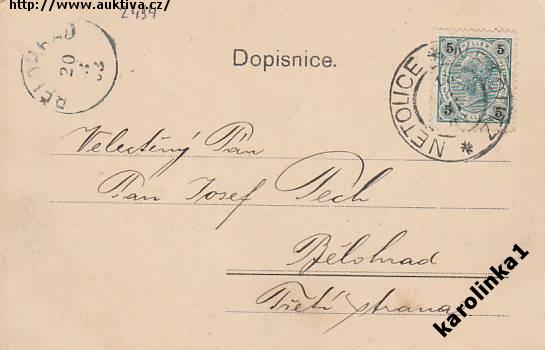 http://www.auktiva.cz/
2434
BĚLOHRAD
20
3
03
Dopisnice.
5 5
5 5
NETOLICE
Velectěný Pán
Pan Josef Pech
Bělohrad
Třetí strana
karolinka1